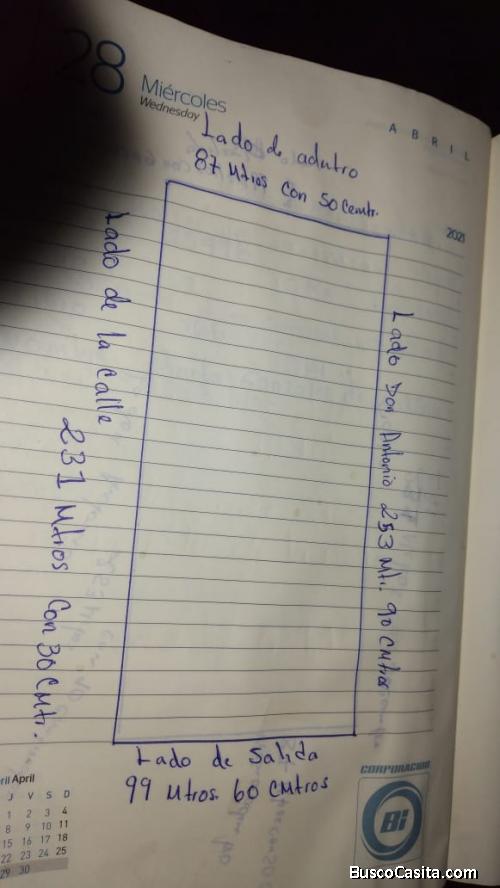 28
Miércoles
Wednesday
A B R I L
2021
Lado de adntro
87 Mtros Con 50 Centr.
Lado de la Calle
231 Mtros Con 30 CMtr.
Lado Don Antonio 253 Mtr. 90 CMtros
Lado de Salida
99 Mtros. 60 CMtros
ril April
J V S D
1 2 3 4
8 9 10 11
15 16 17 18
22 23 24 25
29 30
CORPORACION
Bi
BuscoCasita.com